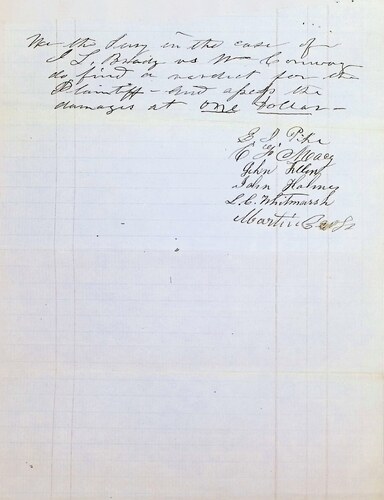 We the Jury in the case of
L. Brady vs Wm Conway
do find a verdict for the
Plaintiff - and assess the
damages at one Dollar -
E. J. Pike
C. F. Macy
John Allen
John Holmes
L. C. Whitmarsh
Martin